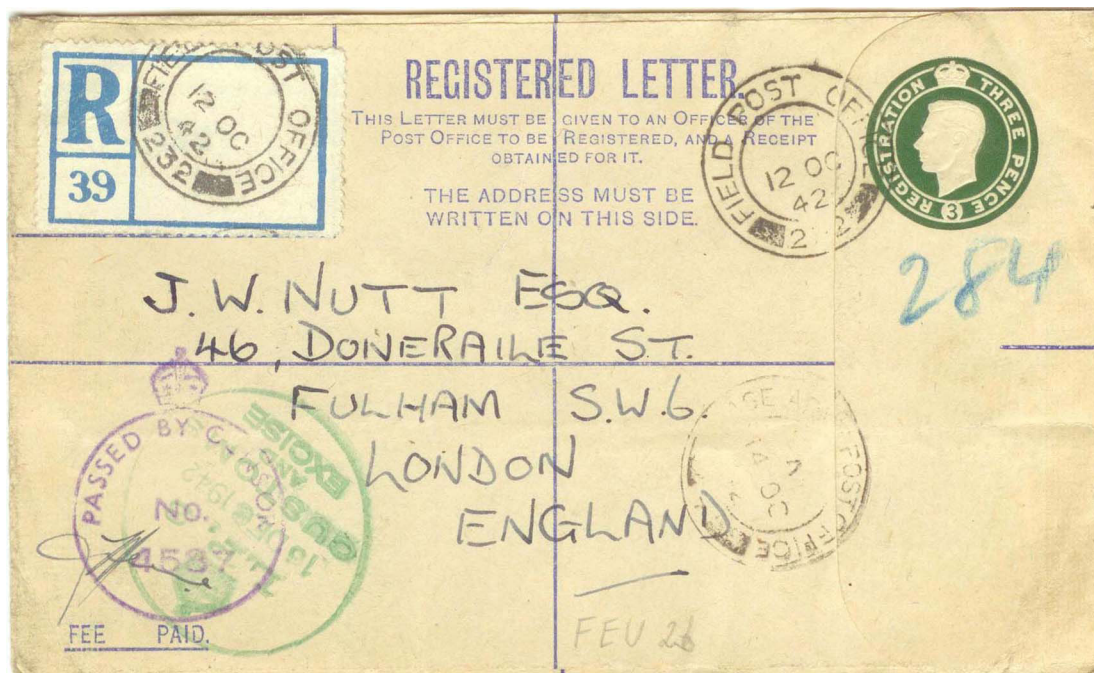 R
39
FIELD POST OFFICE
12 OC
42
232
REGISTERED LETTER.
THIS LETTER MUST BE GIVEN TO AN OFFICER OF THE
POST OFFICE TO BE REGISTERED, AND A RECEIPT
OBTAINED FOR IT.
THE ADDRESS MUST BE
WRITTEN ON THIS SIDE.
FIELD POST OFFICE
12 OC
42
REGISTRATION THREE PENCE 3
284
J. W. NUTT ESQ.
46, DONERAILE ST.
FULHAM S.W.6.
LONDON
ENGLAND
PASSED BY CENSOR
No.
4587
CUSTOMS
AND
EXCISE
1942
POST OFFICE
14 OC
FEE PAID.